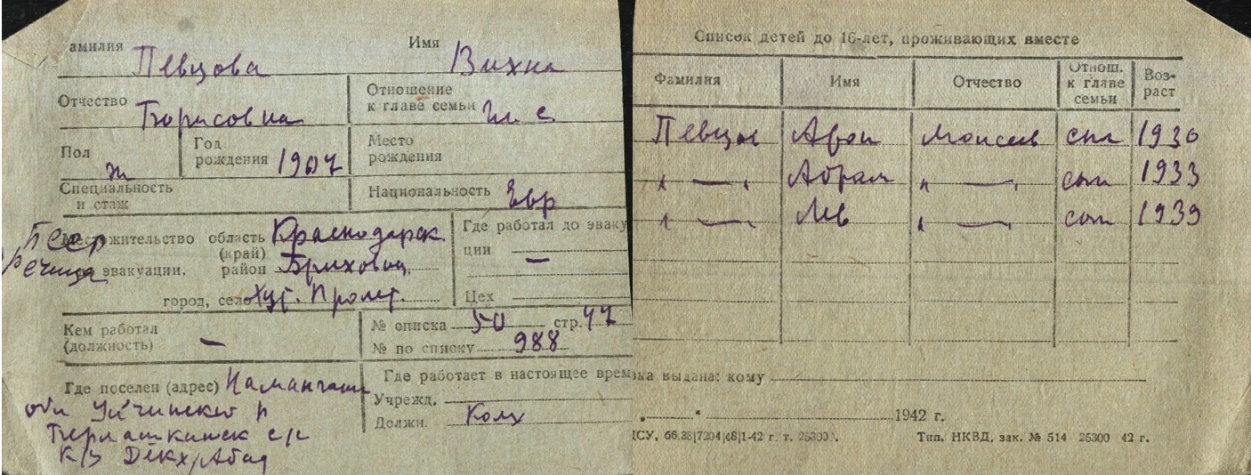 амилия Певцова Имя Вихна
Отчество Борисовна
Отношение к главе семьи
Пол ж
Год рождения 1907
Место рождения
Специальность и стаж
Национальность Евр
Бсср
Речица
Местожительство
эвакуации.
область (край) Краснодарск
район Брюховец.
город, село Хут. Пролет.
Где работал до эваку
ции —
Цех
Кем работал (должность) —
№ списка 50 стр. 47
№ по списку 988
Где поселен (адрес) Наманган
обл Уйчинского р
с/с
к/з Декх/Абад
Где работает в настоящее врем
Учрежд.
Должн. Колх
Список детей до 16-лет, проживающих вместе
Фамилия Имя Отчество Отнош. к главе семьи Воз-раст
Певцов Арон Моисеев сын 1930
" — " Абрам " — " сын 1933
" — " Лев " — " сын 1939
ка выдана: кому
1942 г.
Тип. НКВД, зак. № 514 25300 42 г.